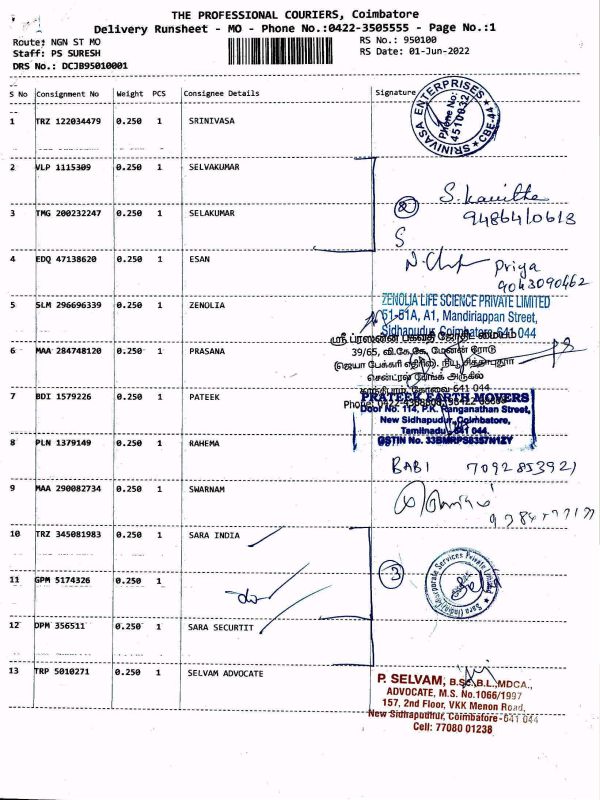 THE PROFESSIONAL COURIERS, Coimbatore
Delivery Runsheet - MO - Phone No.:0422-3505555 - Page No.:1
Route: NGN ST MO
RS No.: 950100
Staff: PS SURESH
RS Date: 01-Jun-2022
DRS No.: DCJB95010001
S No Consignment No Weight PCS Consignee Details Signature
1 TRZ 122034479 0.250 1 SRINIVASA
SRINIVASA ENTERPRISES ★ CBE-44 ★
Phone No:
4510032
2 VLP 1115309 0.250 1 SELVAKUMAR
S. Kavitha
9486410613
3 TMG 200232247 0.250 1 SELAKUMAR
2
S
4 EDQ 47138620 0.250 1 ESAN
Priya
9043090462
5 SLM 296696339 0.250 1 ZENOLIA
ZENOLIA LIFE SCIENCE PRIVATE LIMITED
51-51A, A1, Mandiriappan Street,
Sidhapudur, Coimbatore-641 044
6 MAA 284748120 0.250 1 PRASANA
ஸ்ரீ ப்ரஸன்ன பகவதி ஜோதிட மையம்
39/65, வி.கே.கே. மேனன் ரோடு
(ஜெயா பேக்கரி எதிரில்), நியூ சித்தாபுதூர்
சென்ட்ரல் பேங்க் அருகில்
காந்திபுரம், கோவை 641 044
7 BDI 1579226 0.250 1 PATEEK
PRATEEK EARTH MOVERS
Door No. 114, P.K. Ranganathan Street,
New Sidhapudur, Coimbatore,
Tamilnadu - 641 044.
8 PLN 1379149 0.250 1 RAHEMA
BABI 7092853921
9 MAA 290082734 0.250 1 SWARNAM
10 TRZ 345081983 0.250 1 SARA INDIA
11 GPM 5174326 0.250 1
do
3
Sara (India) Corporate Services Private Limited
12 DPM 356511 0.250 1 SARA SECURTIT
13 TRP 5010271 0.250 1 SELVAM ADVOCATE
P. SELVAM, B.Sc.,B.L.,MDCA.,
ADVOCATE, M.S. No.1066/1997
157, 2nd Floor, VKK Menon Road,
New Sidhapudhur, Coimbatore-641 044
Cell: 77080 01238